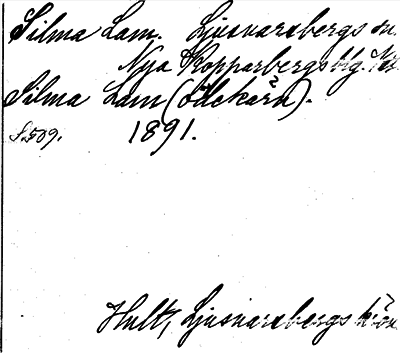 Silma Lam. Ljusnarsbergs sn.
Nya Kopparbergs blg. Näs.
Silma Lam (ödekärn).
S. 509. 1891.
Hult, Ljusnarsbergs krön